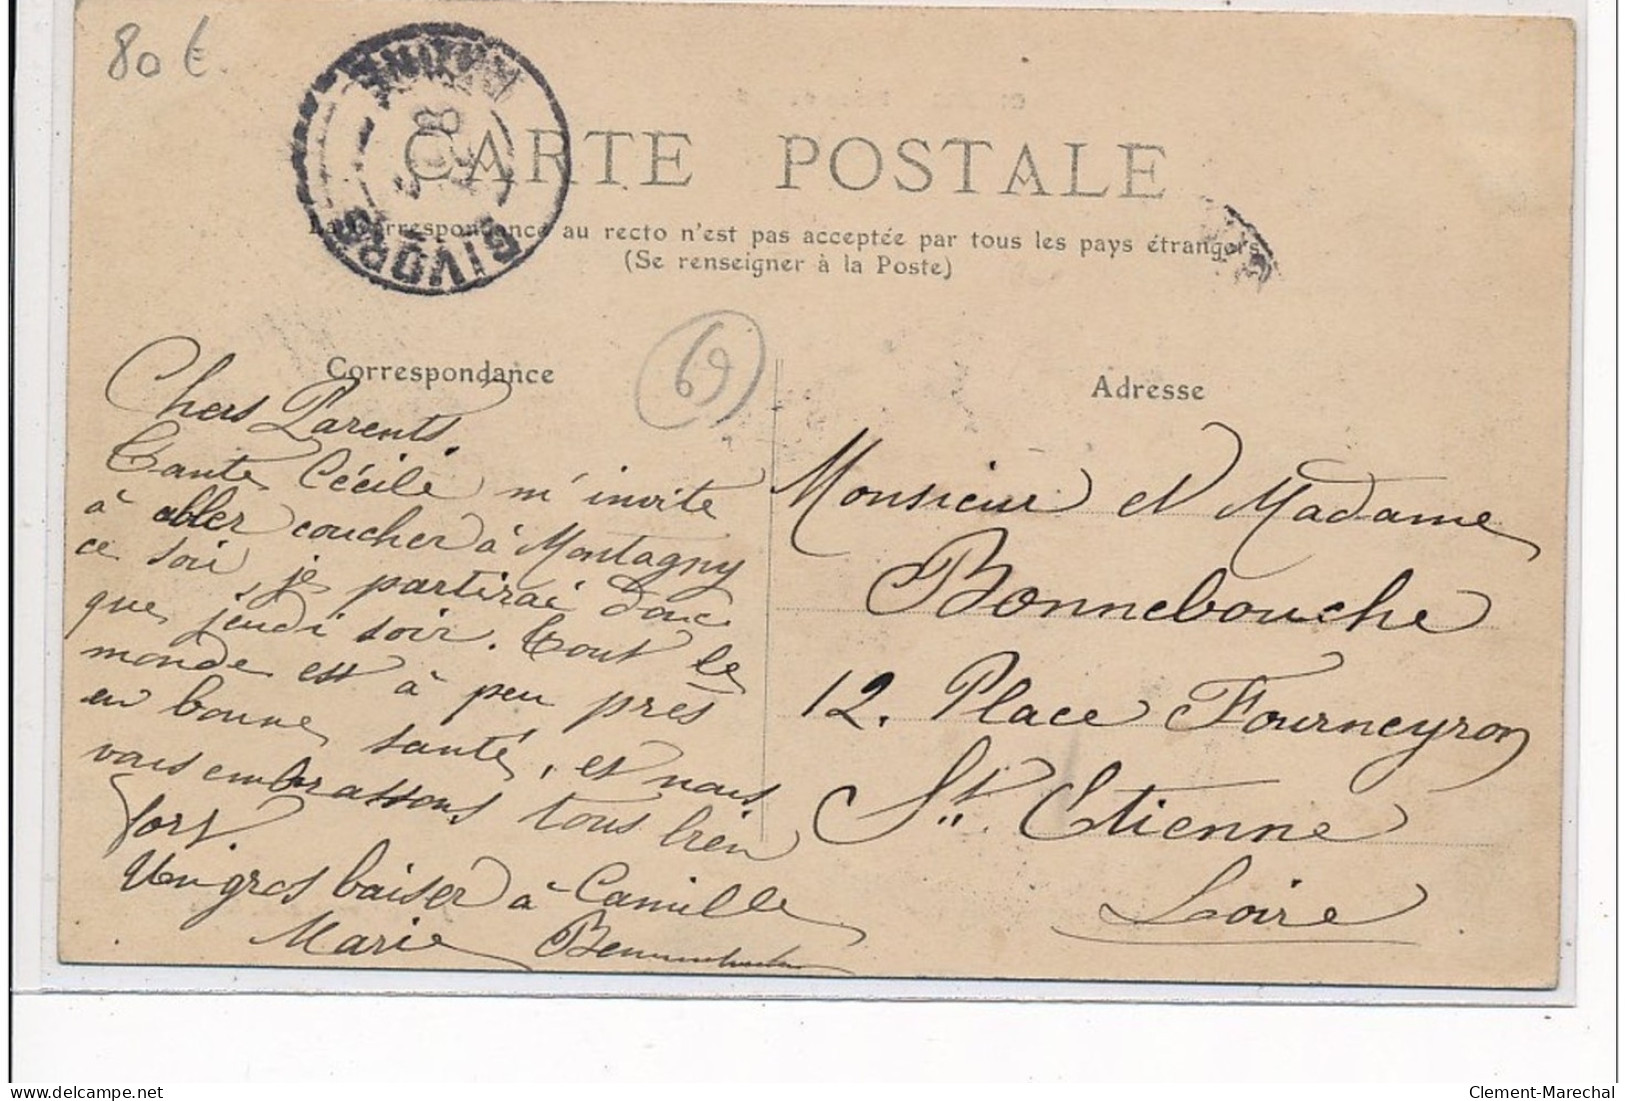 80 €
RHONE
GIVORS
CARTE POSTALE
La Correspondance au recto n'est pas acceptée par tous les pays étrangers
(Se renseigner à la Poste)
69
Correspondance
Adresse
Chers Parents,
Tante Cécile m'invite
à aller coucher à Montagny
ce soir, je partirai donc
que jeudi soir. Tout le
monde est à peu près
en bonne santé, et nous
vous embrassons tous bien
fort.
Un gros baiser à Camille
Marie
Monsieur et Madame
Bonnebouche
12. Place Fourneyron
St. Etienne
Loire
Clement-Marechal